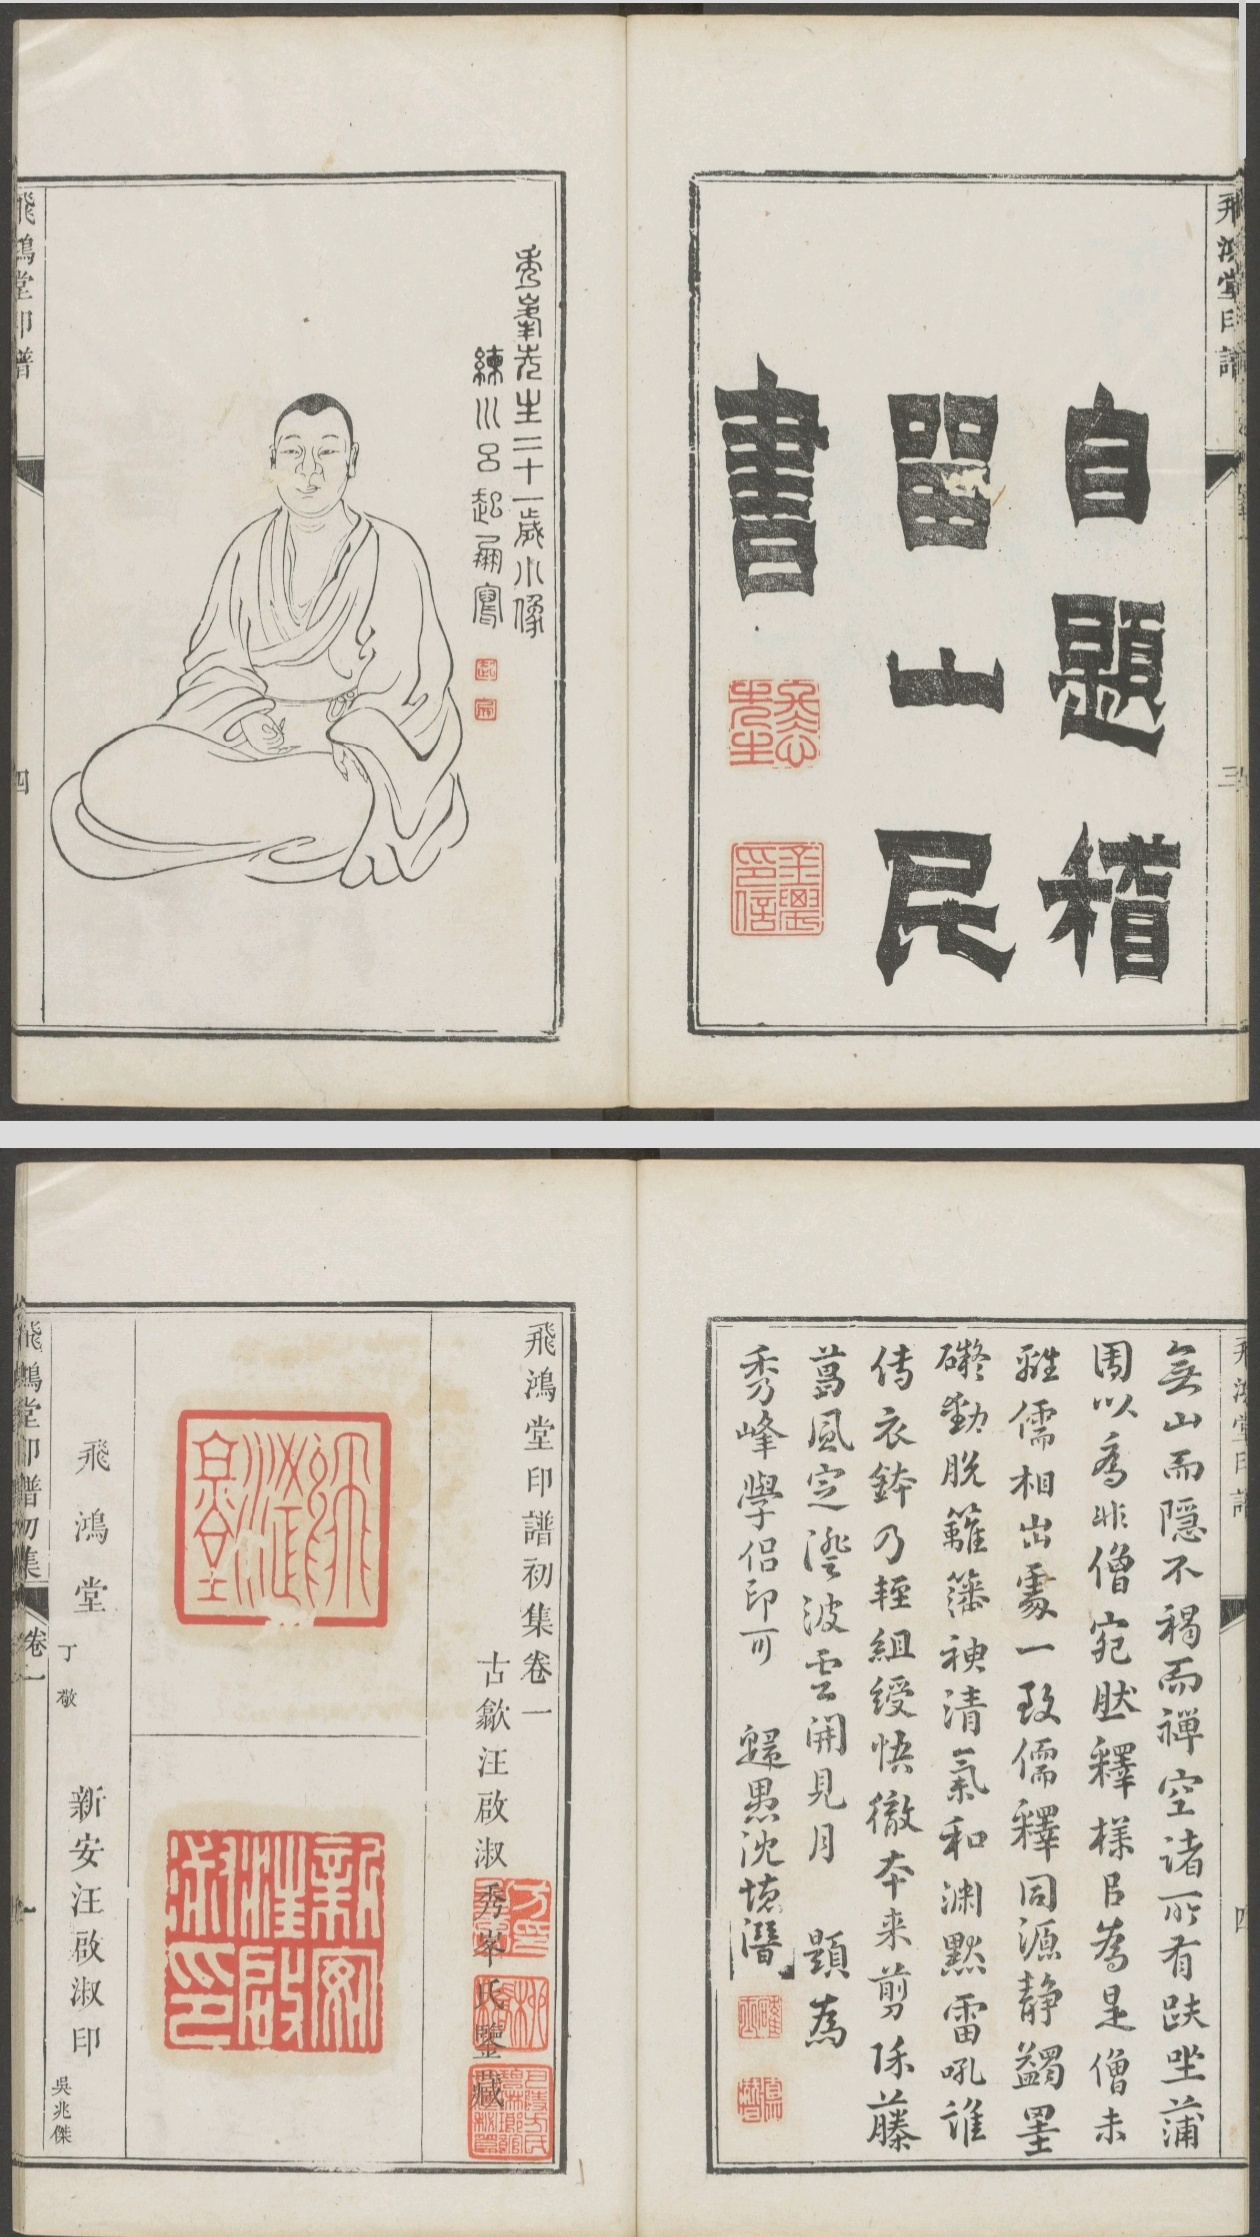 飛鴻堂印譜
三
自題稽
留山民
書
冬心先生
金農印信
秀峯先生二十一歲小像
練川呂起鳳寫
飛鴻堂印譜
四
飛鴻堂印譜
四
無山而隱不褐而禪空諸所有趺坐蒲
團以為非僧宛肰釋樣以為是僧未
離儒相出處一致儒釋同源靜蠲墨
礙動脫籬籓神清氣和淵默雷吼誰
傳衣鉢乃輕組綬悟徹本来剪除藤
葛風定澄波雲開見月 題為
秀峰學侶印可 歸愚沈德潛
飛鴻堂印譜初集卷一
古歙汪啟淑秀峯氏鑒藏
飛鴻堂
新安汪啟淑印
飛鴻堂 丁敬 新安汪啟淑印 吳兆傑
飛鴻堂印譜初集 卷一